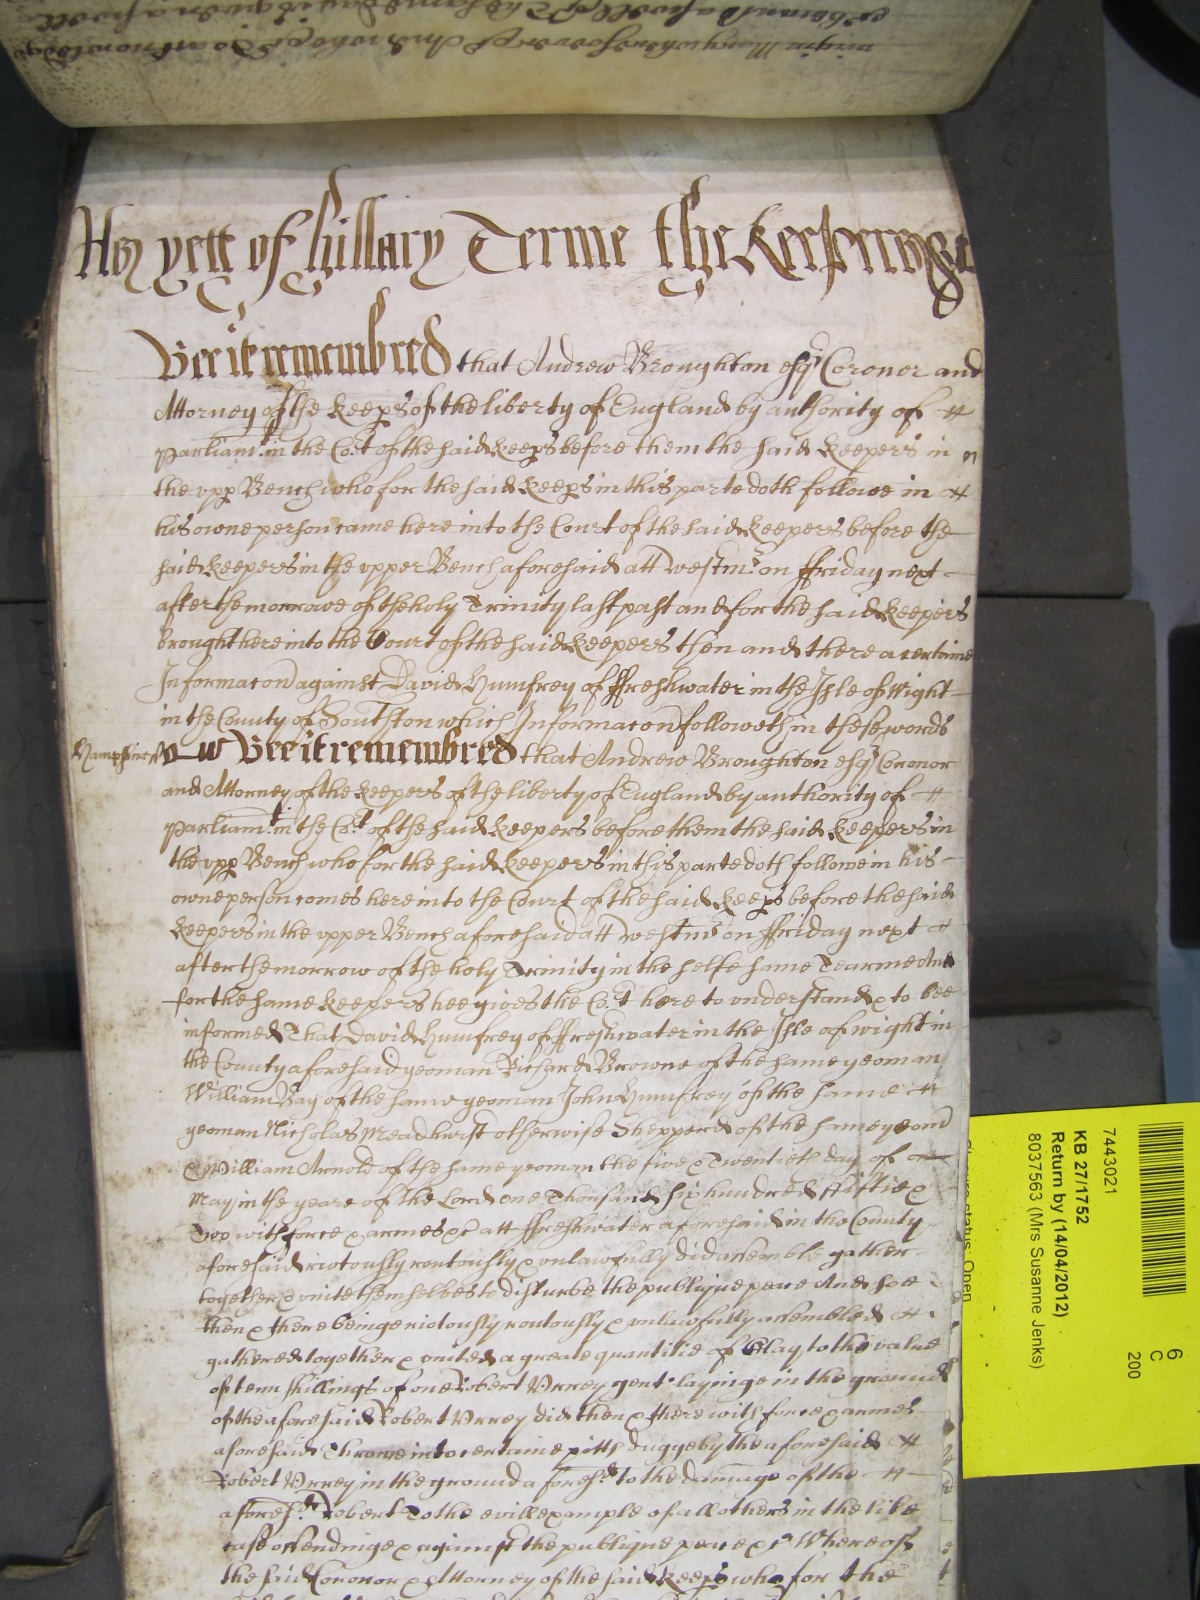 As yett of hillary Terme the Keepers &c
Bee it remembred that Andrew Broughton esqr Coronor and
Attorney of the Keeps of the liberty of England by authority of
Parliamt in the Cort of the said Keeps before them the said Keepers in
the vpp Bench who for the said Keeps in this parte doth followe in
his owne person came here into the Court of the said Keepers before the
said Keepers in the vpper Bench aforesaid att Westmr on ffriday next
after the morrowe of the holy Trinity last past and for the said Keepers
brought here into the Court of the said Keepers then and there a certaine
Informacon against David Humfrey of ffreshwater in the Isle of Wight
in the County of Southton which Informacon followeth in these words
Hampshire ss Bee it remembred that Andrew Broughton esqr Coronor
and Attorney of the Keepers of the liberty of England by authority of
Parliamt in the Cort of the said Keepers before them the said Keepers in
the vpp Bench who for the said Keepers in this parte doth followe in his
owne person comes here into the Court of the said Keeps before the said
Keepers in the vpper Bench aforesaid att Westmr on ffriday next
after the morrow of the holy Trinity in the selfe same Tearme And
for the same Keepers hee gives the Cort here to vnderstand & to bee
informed That David Humfrey of ffreshwater in the Isle of Wight in
the County aforesaid yeoman Richard Browne of the same yeoman
William Bay of the same yeoman John Humfrey of the same
yeoman Nicholas Meadhurst otherwise Shepperd of the same yeom
& William Arnold of the same yeoman the five & Twentieth day of
May in the yeare of the Lord one Thousand six hundred ffiftie &
Two with force & armes &c att ffreshwater aforesaid in the County
aforesaid riotously routously & vnlawfully did assemble gather
together & vnite themselves to disturbe the publique peace And soe
then & there beinge riotously routously & vnlawfully assembled
gathered together & vnited a greate quantitie of Clay to the value
of tenn shillings of one Robert Vrrey gent layinge in the ground
of the aforesaid Robert Vrrey did then & there with force & armes
aforesaid Throwe into certaine pitts dugge by the aforesaid
Robert Vrrey in the ground aforesd to the damage of the
aforesd Robert To the evill example of all others in the like
case offendinge & against the publique peace &c Whereof
the said Coronor & Attorney of the said Keeps who for the
7443021
KB 27/1752
Return by (14/04/2012)
8037563 (Mrs Susanne Jenks)
6
C
200